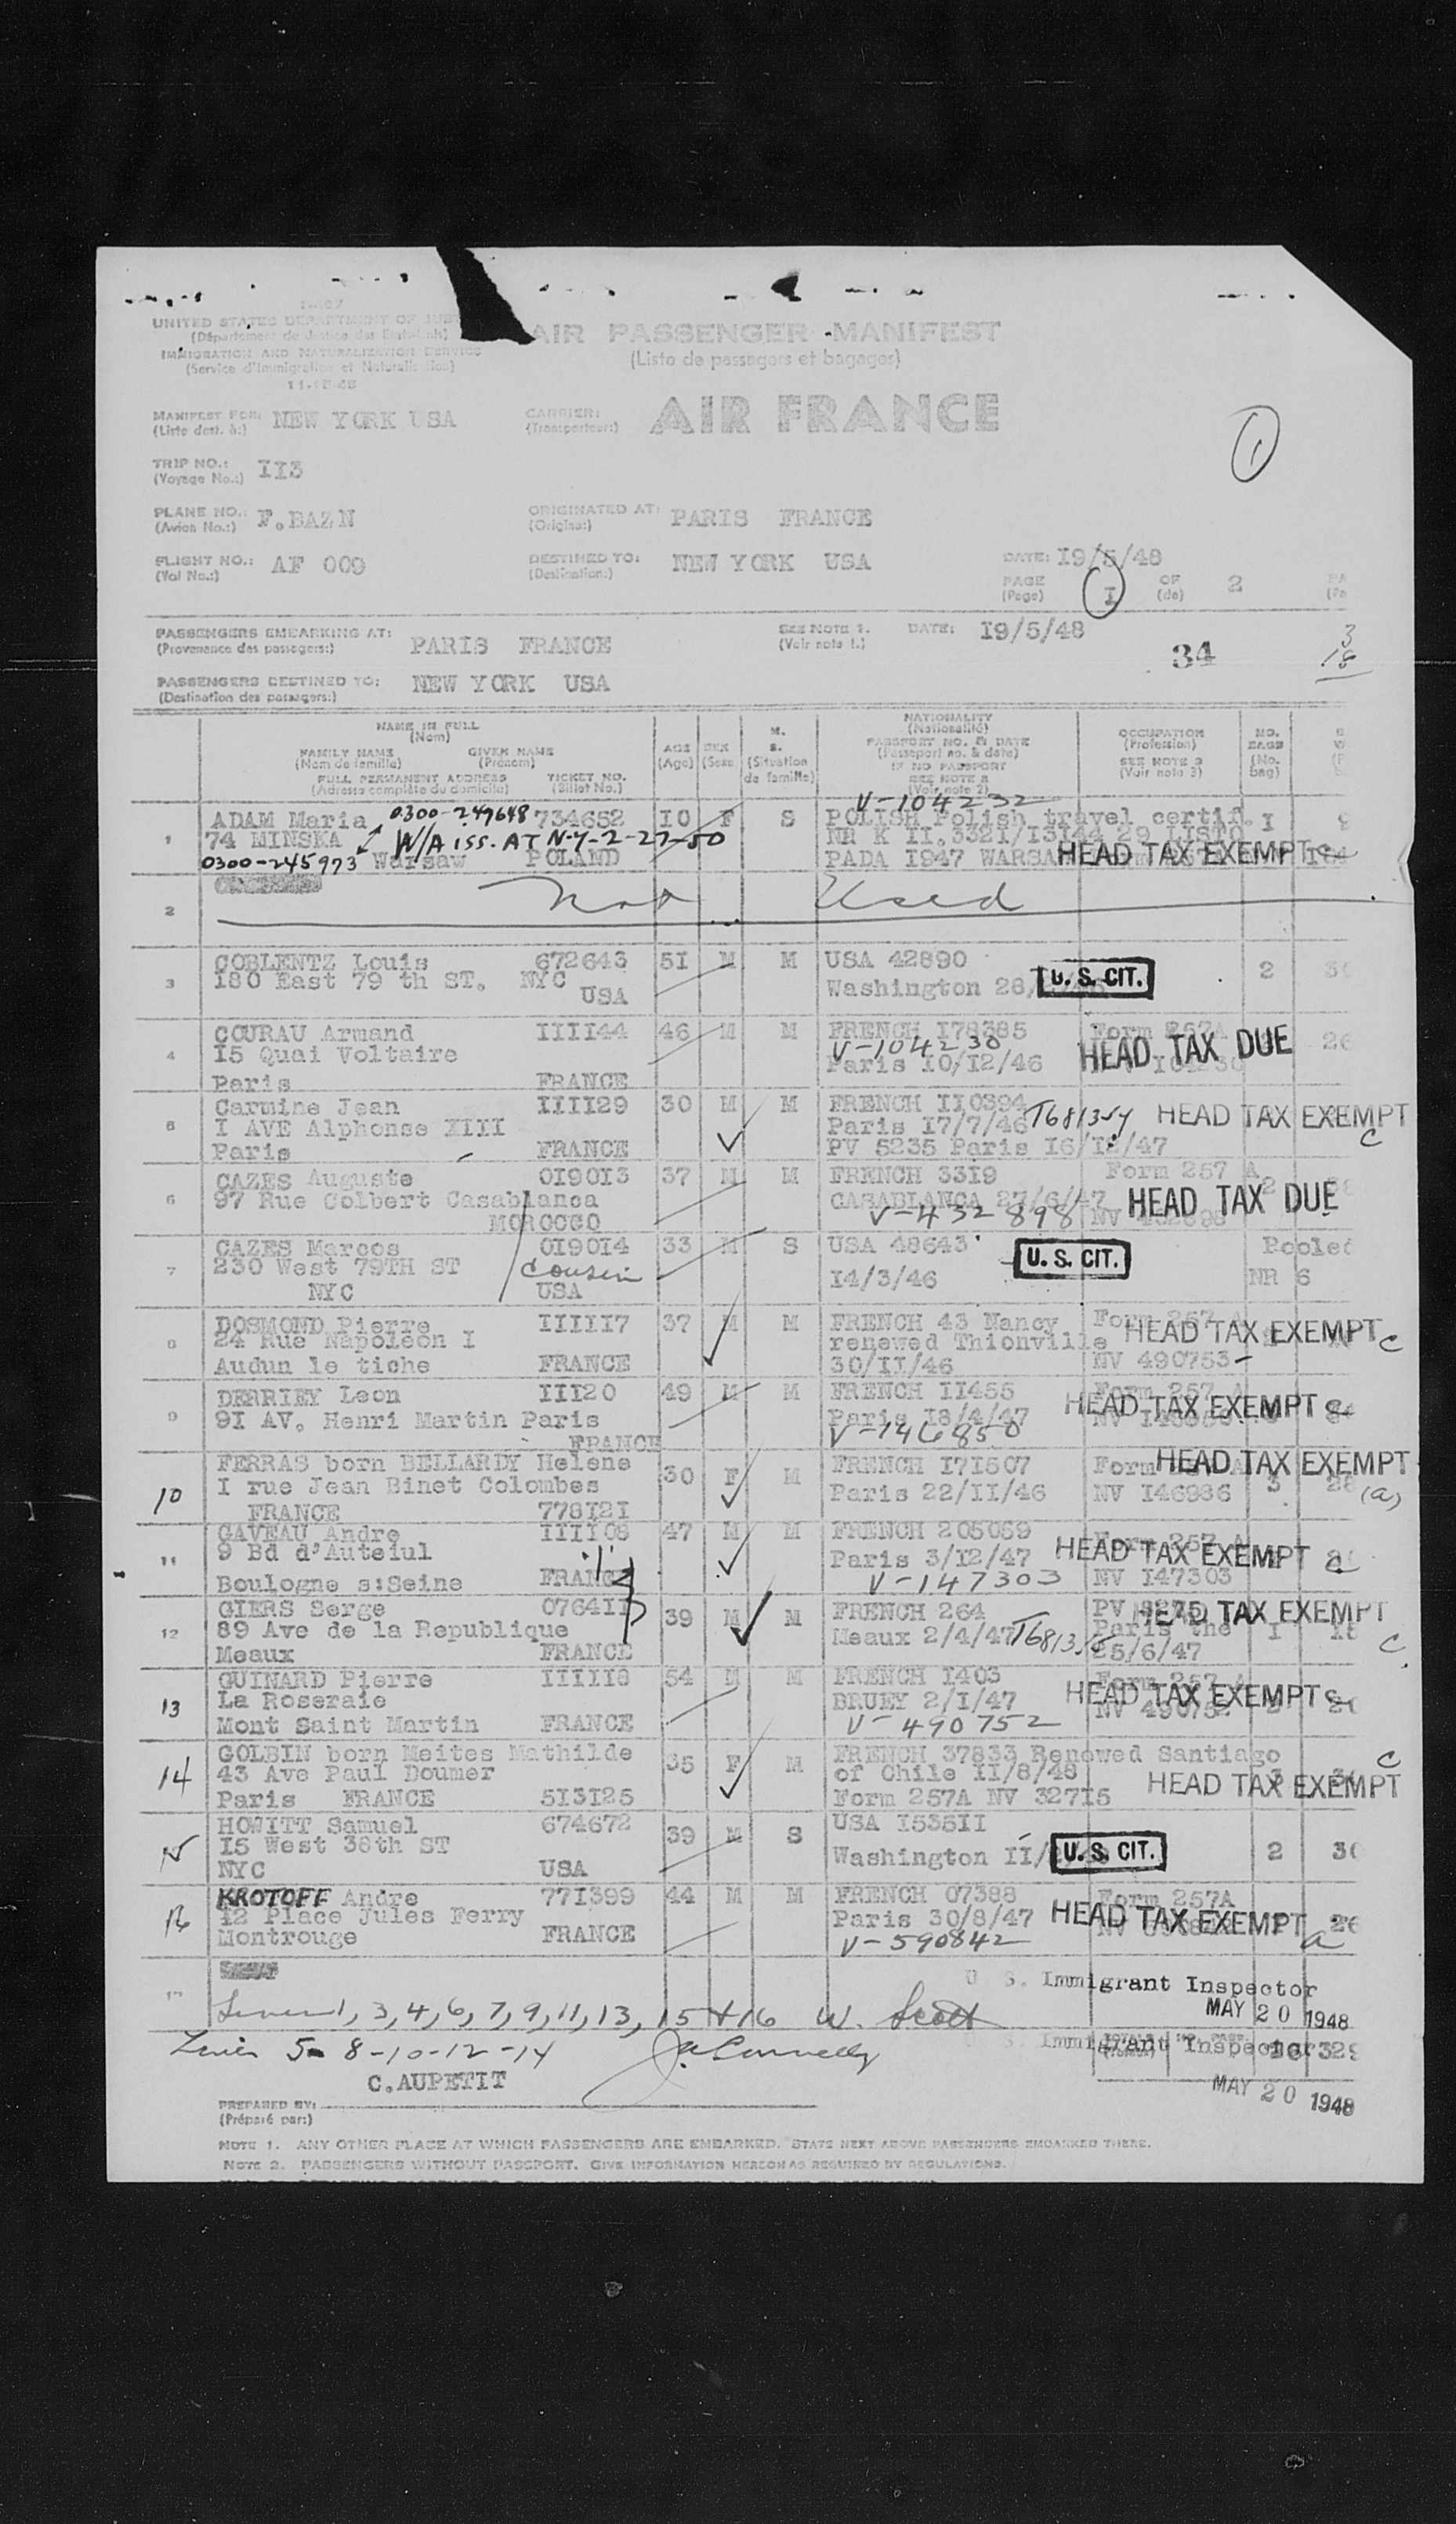 UNITED STATES DEPARTMENT OF JUS
(Département de Justice des Etats-Unis)
IMMIGRATION AND NATURALIZATION SERVICE
(Service d'Immigration et Naturalisation)
AIR PASSENGER MANIFEST
(Liste de passagers et bagages)
MANIFEST FOR: NEW YORK USA
(Liste dest. à:)
CARRIER: AIR FRANCE
(Transporteur:)
1
TRIP NO.: II3
(Voyage No.:)
PLANE NO.: F.BAZN
(Avion No.:)
ORIGINATED AT: PARIS FRANCE
(Origine:)
FLIGHT NO.: AF 009
(Vol No.:)
DESTINED TO: NEW YORK USA
(Destination:)
DATE: I9/5/48
PAGE I OF 2
(Page) (de)
PASSENGERS EMBARKING AT: PARIS FRANCE
(Provenance des passagers:)
SEE NOTE 1. DATE: I9/5/48
(Voir note 1.)
34
3
18
PASSENGERS DESTINED TO: NEW YORK USA
(Destination des passagers:)
NAME IN FULL
(Nom)
FAMILY NAME GIVEN NAME
(Nom de famille) (Prénom)
FULL PERMANENT ADDRESS TICKET NO.
(Adresse complète du domicile) (Billet No.)
AGE
(Age)
SEX
(Sexe
M.
S.
(Situation
de famille)
NATIONALITY
(Nationalité)
PASSPORT NO. & DATE
(Passeport no. & date)
IF NO PASSPORT
SEE NOTE 2
(Voir note 2)
OCCUPATION
(Profession)
SEE NOTE 3
(Voir note 3)
NO.
BAGS
(No.
bag)
V-104232
1 ADAM Maria 0300-249648 734652 I0 F S POLISH Polish travel certif. I 9
74 MINSKA W/A iss. AT N.Y.-2-27-50 NR K II.332I/I3I44 29 LISTO
0300-245973 Warsaw POLAND PADA I947 WARSA HEAD TAX EXEMPT c
2 Not Used
3 COBLENTZ Louis 672643 5I M M USA 42890 2 30
I80 East 79 th ST. NYC Washington 28/ U. S. CIT.
USA
4 COURAU Armand IIII44 46 M M FRENCH I78385 Form 257A 26
I5 Quai Voltaire V-104230 HEAD TAX DUE
Paris 10/I2/46
Paris FRANCE
5 Carmine Jean IIII29 30 M M FRENCH II0394
I AVE Alphonse XIII Paris I7/7/46 HEAD TAX EXEMPT
Paris FRANCE PV 5235 Paris I6/I2/47 c
6 CAZES Auguste 0I90I3 37 M M FRENCH 33I9 Form 257 A 2
97 Rue Colbert Casablanca CASABLANCA 27/6/47 HEAD TAX DUE
MOROCCO V-432898
7 CAZES Marcos 0I90I4 33 M S USA 48643 Pooled
230 West 79TH ST cousin U. S. CIT.
NYC USA I4/3/46 NR 6
8 DOSMOND Pierre IIIII7 37 M M FRENCH 43 Nancy Form 257 A
24 Rue Napoléon I renewed Thionville HEAD TAX EXEMPT c
Audun le tiche FRANCE 30/II/46 NV 490753
9 DERRIEY Leon III20 49 M M FRENCH II455 Form 257 A
9I AV. Henri Martin Paris Paris I8/4/47 HEAD TAX EXEMPT c
FRANCE V-146850
10 FERRAS born BELLARDY Helene 30 F M FRENCH I7I507 HEAD TAX EXEMPT
I rue Jean Binet Colombes Paris 22/II/46 NV I46986 3 28 (a)
FRANCE 778I2I
11 GAVEAU Andre IIII08 47 M M FRENCH 205059 Form 257 A
9 Bd d'Auteiul Paris 3/I2/47 HEAD TAX EXEMPT
Boulogne s:Seine FRANCE V-147303 NV I47303
12 GIERS Serge 0764II 39 M M FRENCH 264 PV HEAD TAX EXEMPT
89 Ave de la Republique Meaux 2/4/47 Paris the I I5
Meaux FRANCE 25/6/47 c
13 GUINARD Pierre IIIII8 54 M M FRENCH I403 Form 257 A
La Roseraie BRUEY 2/I/47 HEAD TAX EXEMPT c
Mont Saint Martin FRANCE V-490752
14 GOLBIN born Meites Mathilde 35 F M FRENCH 37833 Renewed Santiago c
43 Ave Paul Doumer of Chile II/8/48 HEAD TAX EXEMPT
Paris FRANCE 5I3I25 Form 257A NV 327I5
15 HOWITT Samuel 674672 39 M S USA I535II
I5 West 38th ST Washington II/ U. S. CIT. 2 30
NYC USA
16 KROTOFF Andre 77I399 44 M M FRENCH 07388 Form 257A
I2 Place Jules Ferry Paris 30/8/47 HEAD TAX EXEMPT 26
Montrouge FRANCE V-590842 a
U. S. Immigrant Inspector
17 Lines 1, 3, 4, 6, 7, 9, 11, 13, 15 + 16 W. Scott MAY 20 1948
Lines 5- 8-10-12-14 J. Connelly S. Immigrant Inspector
C.AUPETIT MAY 20 1948
PREPARED BY:
(Préparé par:)
NOTE 1. ANY OTHER PLACE AT WHICH PASSENGERS ARE EMBARKED. STATE NEXT ABOVE PASSENGERS EMBARKED THERE.
NOTE 2. PASSENGERS WITHOUT PASSPORT. GIVE INFORMATION HEREON AS REQUIRED BY REGULATIONS.